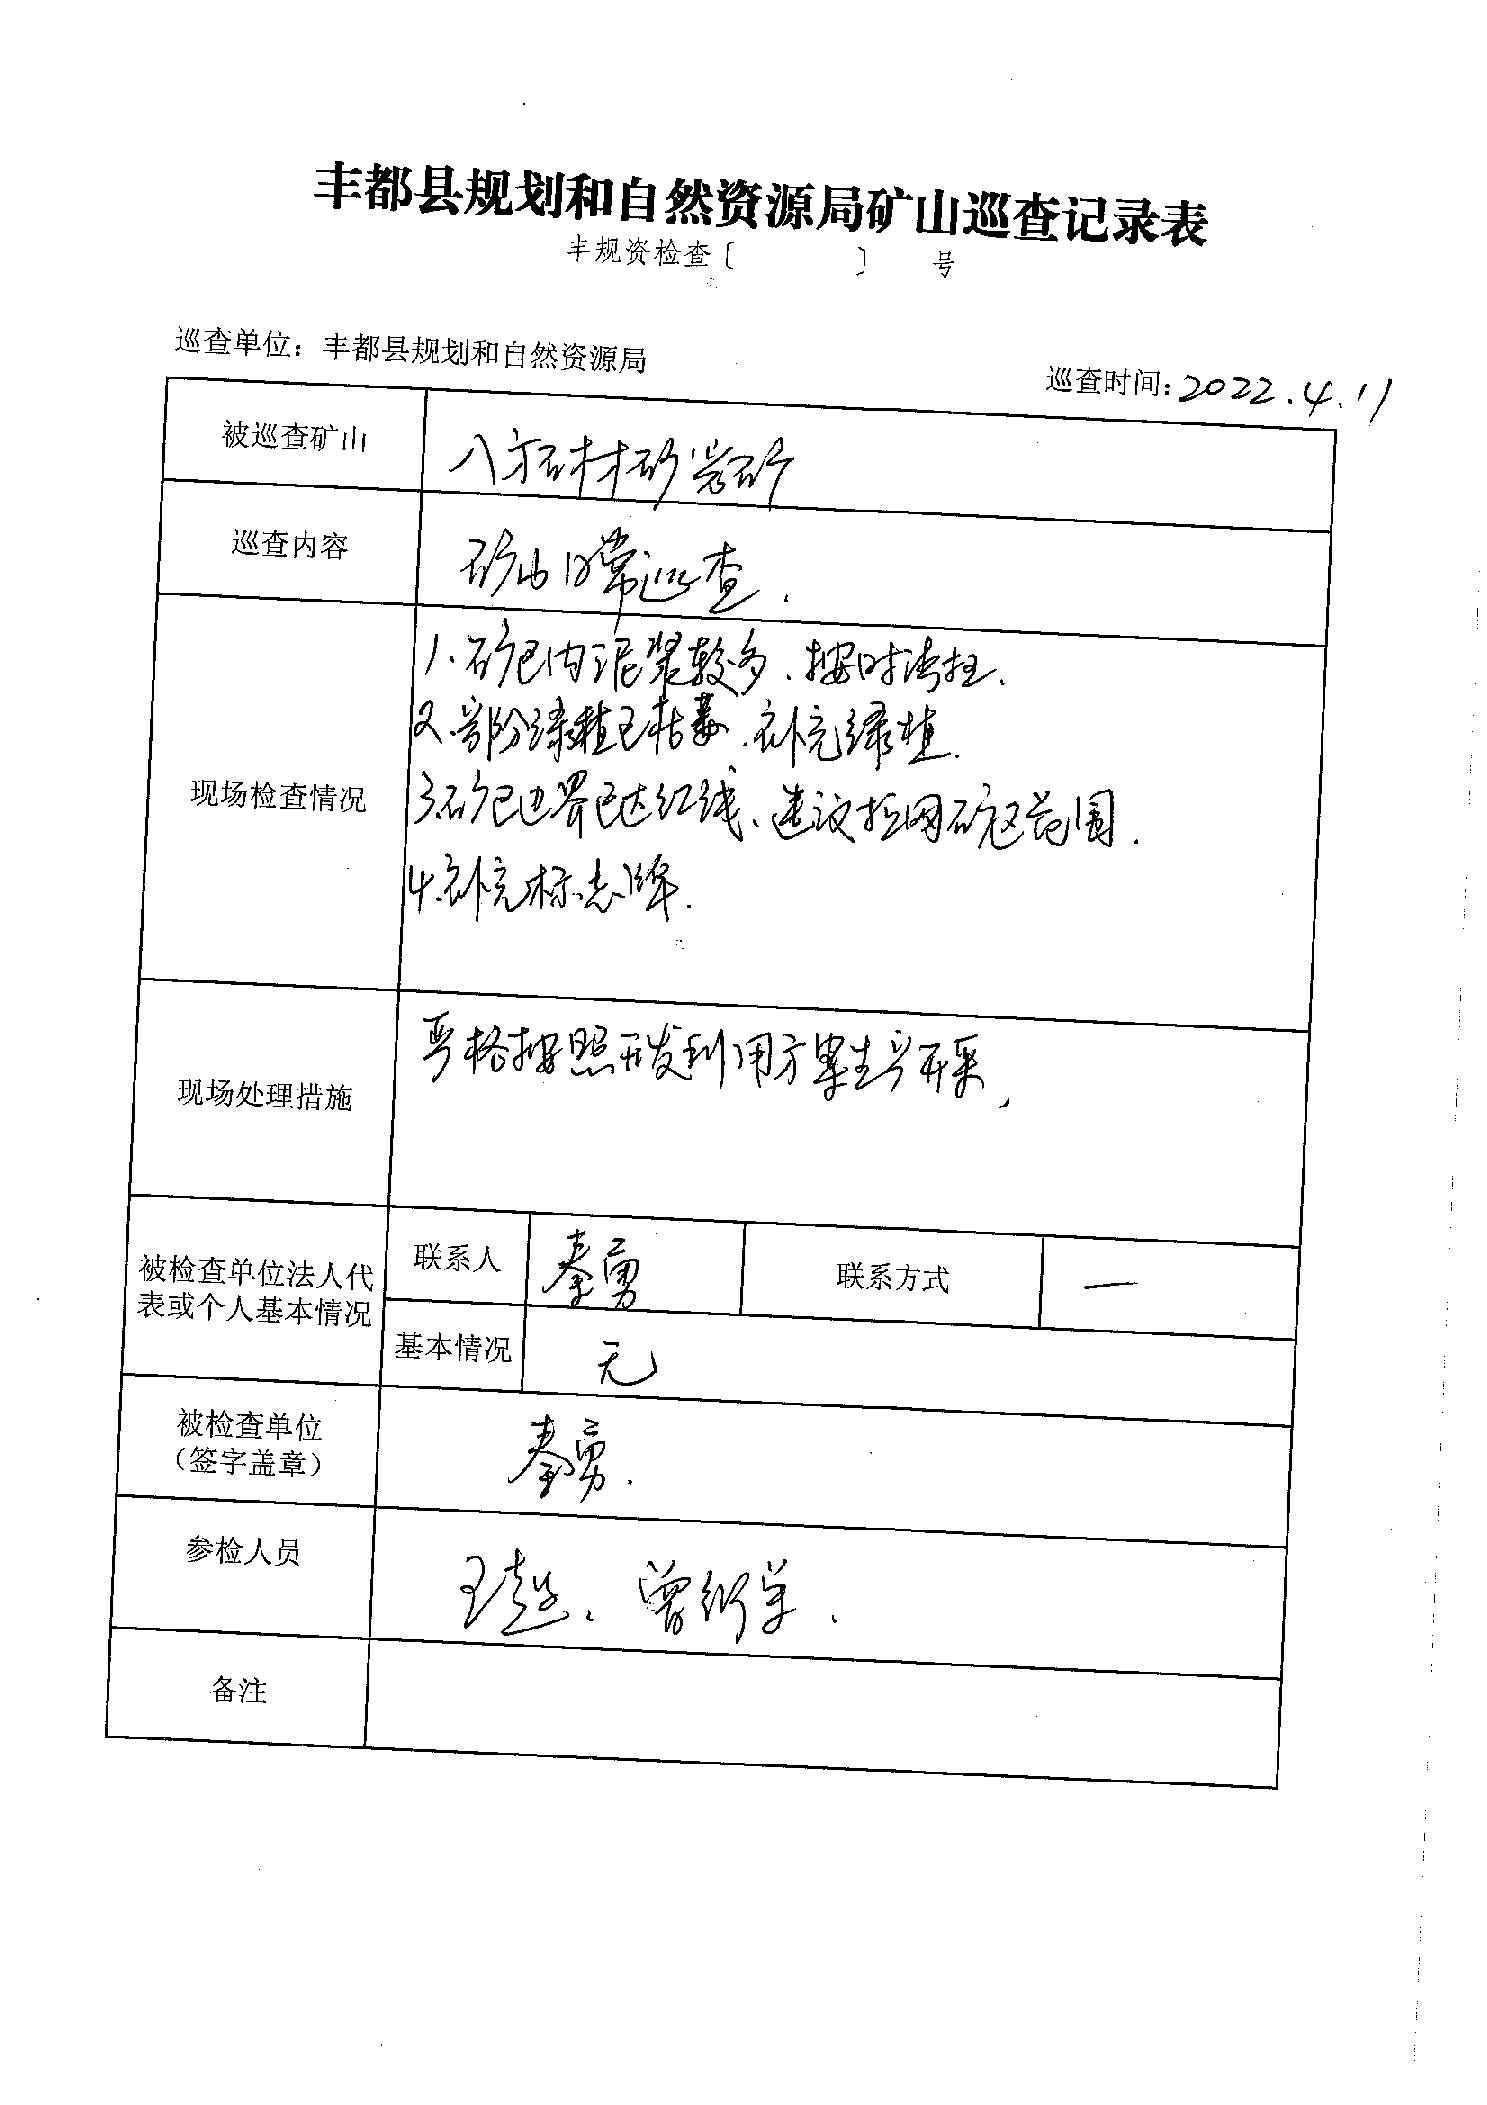 丰都县规划和自然资源局矿山巡查记录表
丰规资检查〔 〕 号
巡查单位：丰都县规划和自然资源局
巡查时间：2022.4.11
被巡查矿山 八方石材砂岩矿
巡查内容 矿山日常巡查.
现场检查情况
1.矿区内泥浆较多、按时清扫.
2.部份绿植已枯萎、补充绿植.
3.矿区边界已达红线、建议拉网矿区范围.
4.补充标志牌.
现场处理措施 严格按照开发利用方案生产开采,
被检查单位法人代
表或个人基本情况
联系人 秦勇 联系方式 一
基本情况 无
被检查单位
（签字盖章） 秦勇.
参检人员 王超、曾
备注